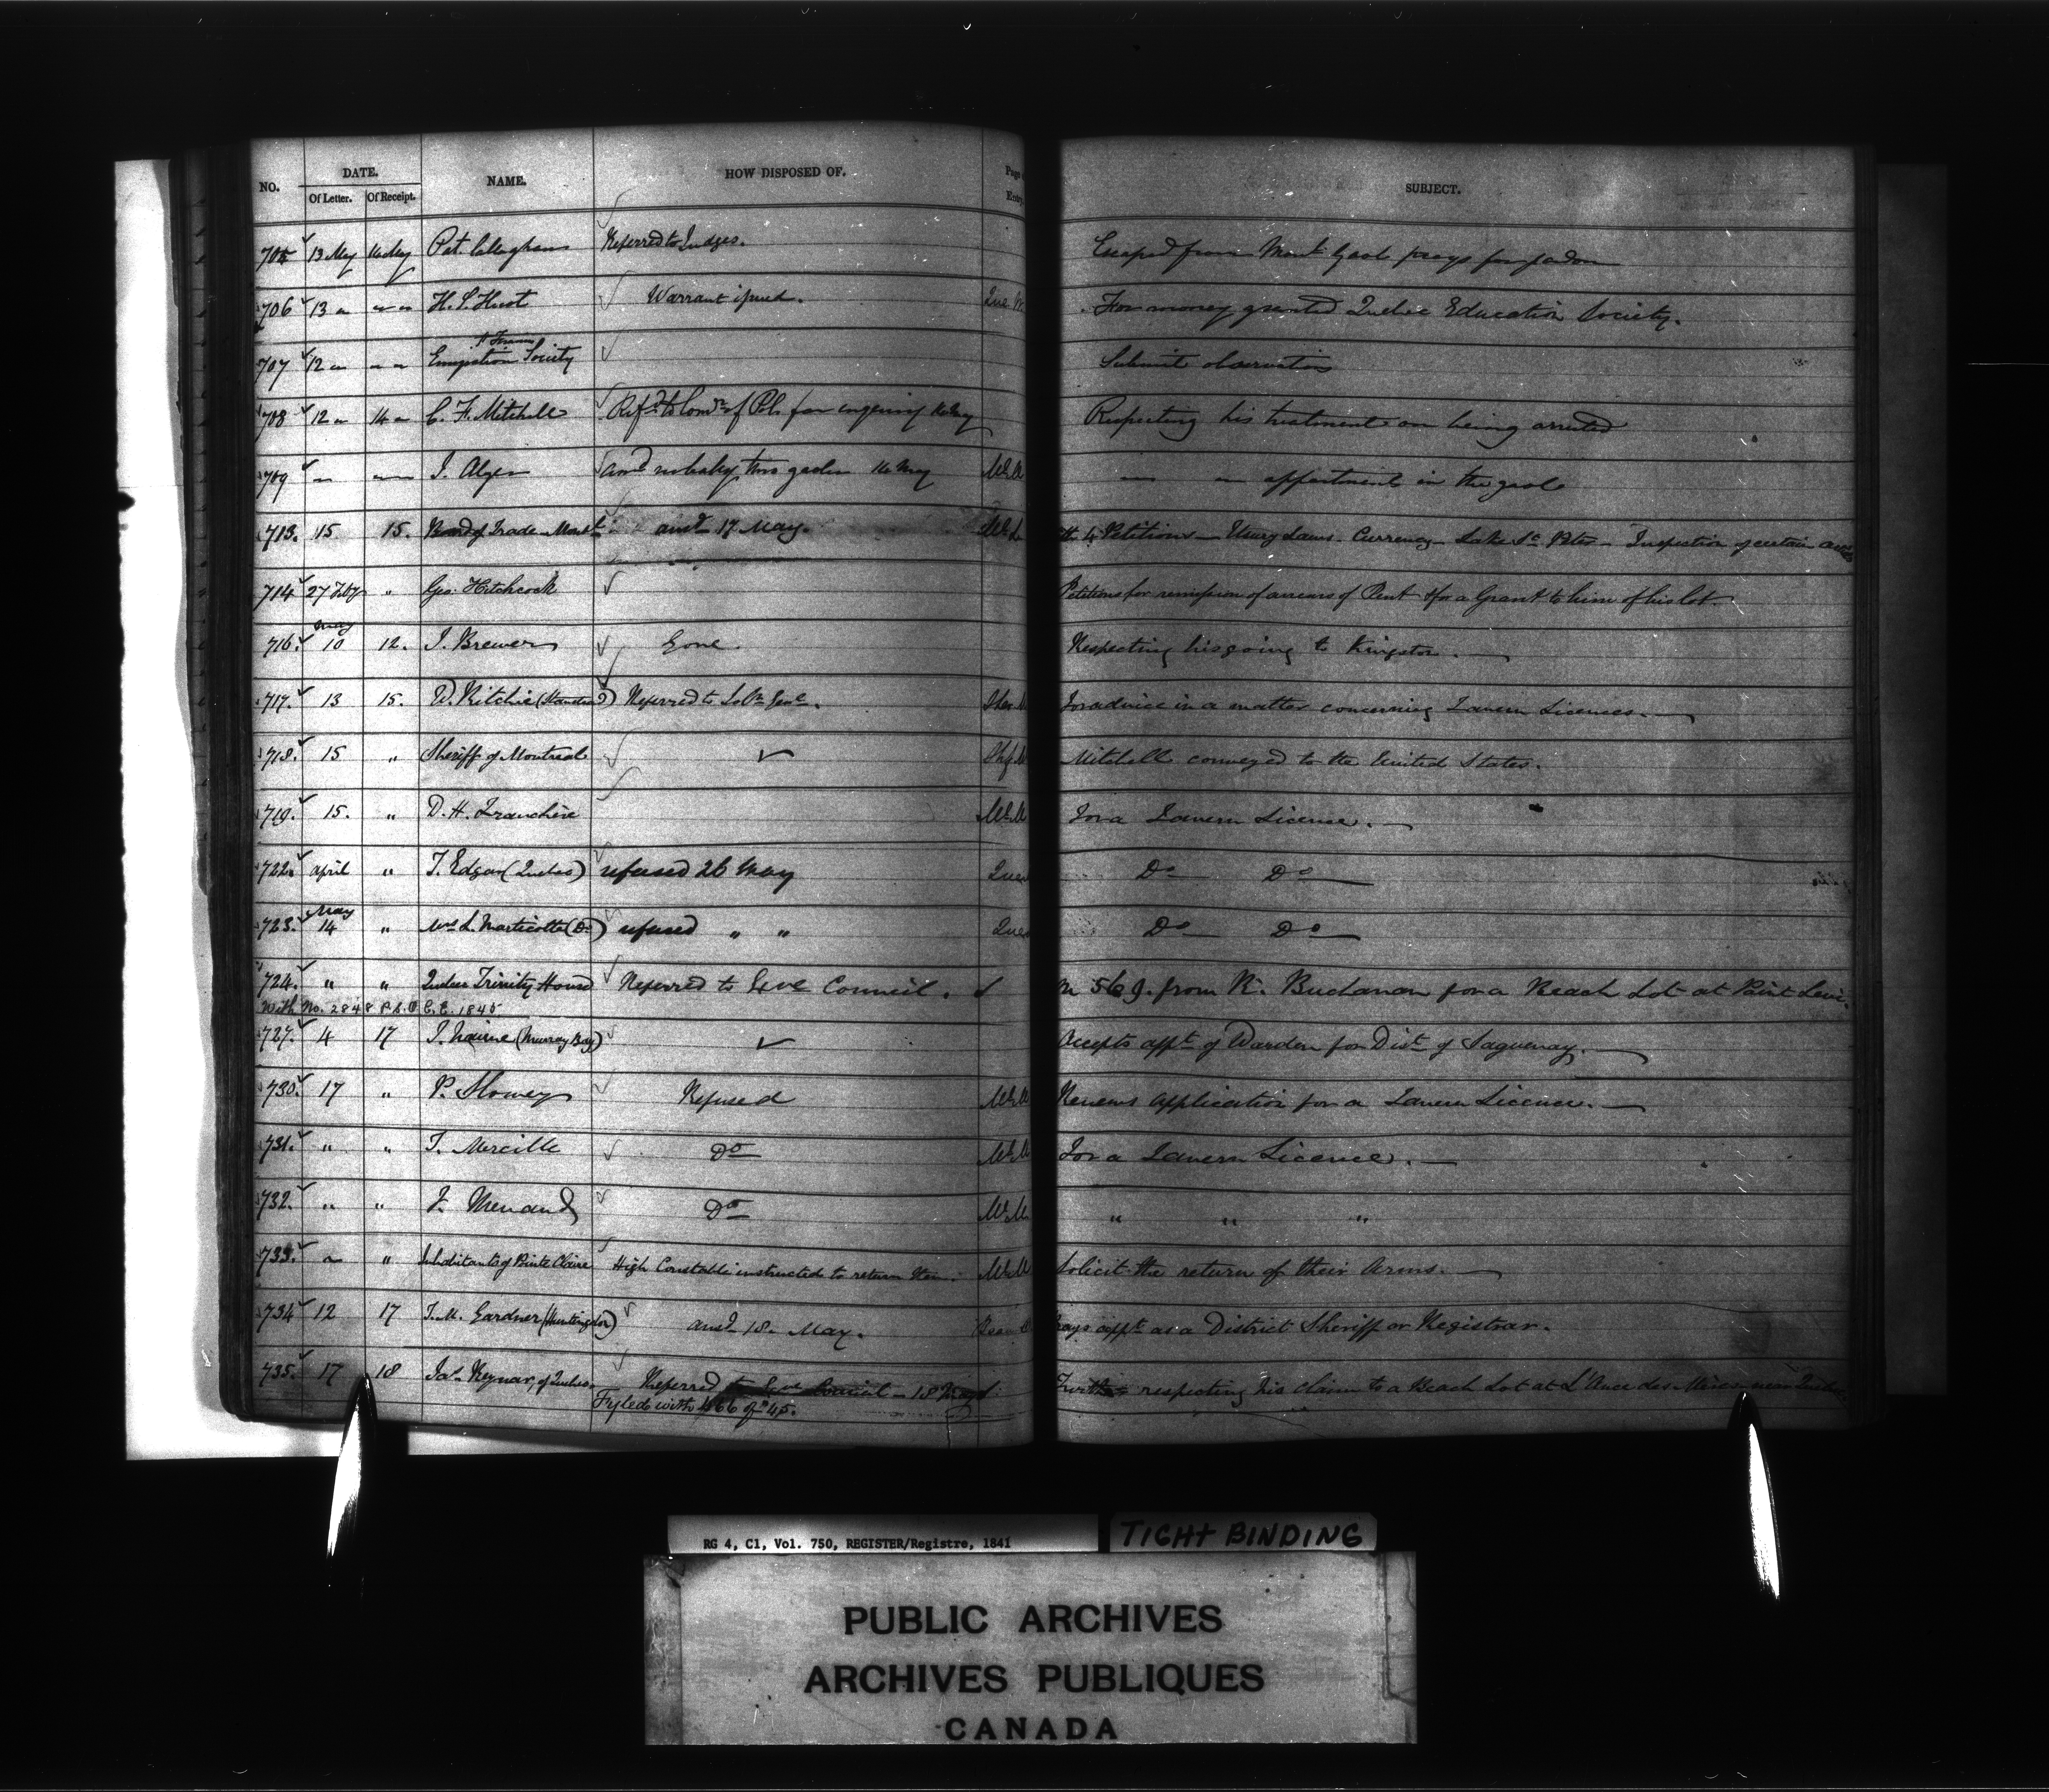 NO. DATE. NAME. HOW DISPOSED OF. Page Entry SUBJECT.
Of Letter. Of Receipt.
705 13 May 14 May Pat. Callaghan Referred to Judges. Escaped from Mont. Gaol prays for pardon
706 13 " " " H. S. Hunt Warrant issued. Que For money granted Quebec Education Society.
707 12 " " " Emigration Society Submit observations
708 12 " 14 " C. F. Mitchell Refd. to Comr. of Pol. for enquiry 14 May Respecting his treatment on being arrested
709 " " " J. Alger 14 May " " appartment in the gaol
713. 15 15. Board of Trade Montl. ansd. 17 May. 4 Petitions — Usury Laws. Currency — Lake St. Peter — Inspection of certain
714 27 Feby " Geo. Hitchcock Petitions for remission of arrears of Rent & for a Grant to him of his lot.
716. May 10 12. J. Brewer Gone. Respecting his going to Kingston.
717. 13 15. W. Ritchie Referred to Solr. Genl. For advice in a matter concerning Tavern Licences.
718. 15 " Sheriff of Montreal Mitchell conveyed to the United States.
719. 15. " D. H. Franchère For a Tavern Licence.
722. April " T. Edgar (Quebec) refused 26 May Do Do
723. May 14 " L. Marticotte (Do) refused " " Do Do
724. " " Quebec Trinity House Referred to Exve Council. 569. from R. Buchanan for a Beach Lot at Point Levi.
With No. 2848 P.S.O C.E. 1845
727. 4 17 J. Nairne (Murray Bay) Accepts appt. of Warden for Dist. of Saguenay.
730. 17 " P. Refused Renews application for a Tavern Licence.
731. " " T. Mercille Do For a Tavern Licence.
732. " " F. Menard Do " " "
733. " " Inhabitants of Pointe Claire High Constable instructed to return them. Solicit the return of their Arms.
734 12 17 T. M. Gardner (Huntingdon) ansd. 18. May. appt. as a District Sheriff or Registrar.
735. 17 18 of Quebec Referred to Exve Council — 18 May Further respecting his claim to a Beach Lot at L'Ance des Mères near Quebec
Fyled with 466 of '45.
RG 4, C1, Vol. 750, REGISTER/Registre, 1841
TIGHT BINDING
PUBLIC ARCHIVES
ARCHIVES PUBLIQUES
CANADA